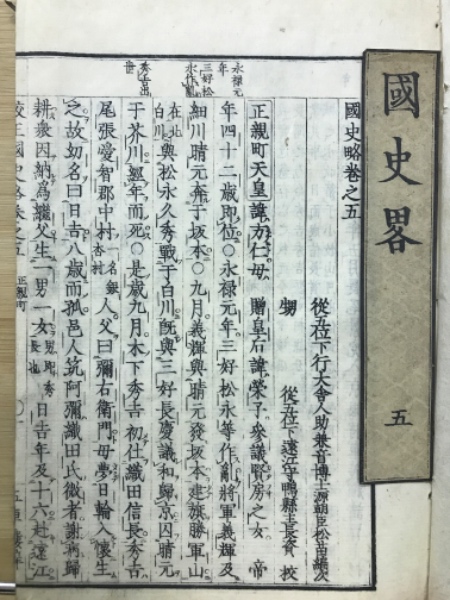 國史畧 五
永禄元
年
三好松
永作亂
秀吉出
世
國史略卷之五
從五位下行大舍人助兼音博士源朝臣松苗編次
甥 從五位下遠江守鴨縣主長資 校
正親町天皇諱方仁母贈皇后諱榮子參議賢房之女帝
年四十二歲即位○永禄元年三好松永等作亂將軍義輝及
細川晴元奔于坂本○九月義輝與晴元發坂本建旗勝軍山
在北白川與松永久秀戰于白川既與三好長慶議和歸京因晴元
于芥川經年而死○是歲九月木下秀吉初仕織田信長秀吉
尾張愛智郡中村一名銀杏村人父曰彌右衛門母夢日輪入懷生
之故幼名曰日吉八歲而孤邑人筑阿彌織田氏微者謝病歸
耕歛因納為繼父生一男一女男即秀長也日吉年及十六赴遠江
校正國史略卷之五 正親町